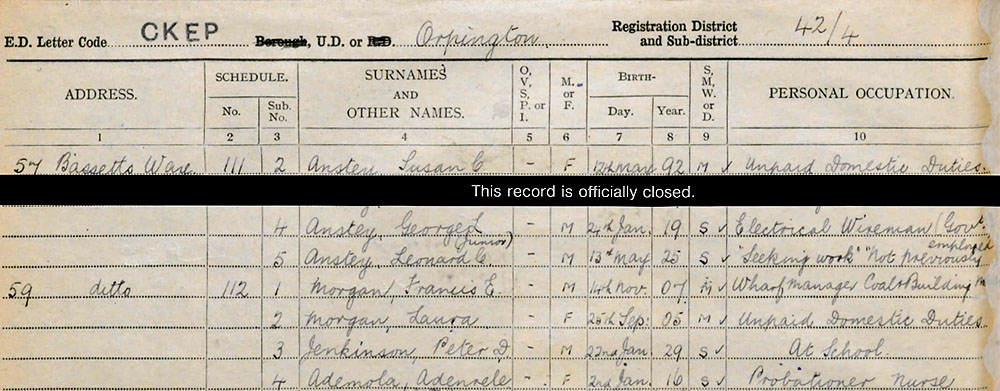 E.D. Letter Code CKEP Borough, U.D. or R.D. Orpington. Registration District and Sub-district 42/4
ADDRESS. SCHEDULE. SURNAMES AND OTHER NAMES. O, V, S, P. or I. M. or F. BIRTH- S, M, W. or D. PERSONAL OCCUPATION.
No. Sub. No. Day. Year.
1 2 3 4 5 6 7 8 9 10
57 Bassetts Way 111 2 Anstey, Susan C - F 12th May 92 M ✓ Unpaid Domestic Duties.
This record is officially closed.
4 Anstey, George L (Junior) - M 24th Jan. 19 S ✓ Electrical Wireman (Govt.
5 Anstey, Leonard C. - M 13th May 25 S ✓ "Seeking work" "Not previously employed
59 ditto 112 1 Morgan, Francis E. - M 14th Nov. 07 M ✓ Wharf Manager Coal & Building
2 Morgan, Laura - F 25th Sep: 05 M ✓ Unpaid Domestic Duties.
3 Jenkinson, Peter D. - M 22nd Jan. 29 S ✓ At School.
4 Ademola, Adenrele - F 2nd Jan. 16 S ✓ Probationer Nurse